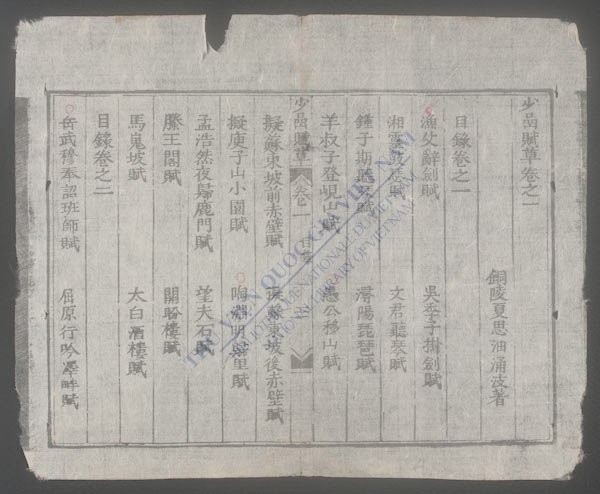 少嵒賦草卷之一
銅陵夏思沺涵波著
目錄卷之一
漁父辭劍賦 吳季子掛劍賦
湘靈鼓瑟賦 文君聽琴賦
鍾子期聽琴賦 潯陽琵琶賦
羊叔子登峴山賦 愚公移山賦
少嵒賦草 卷一 目錄
擬蘇東坡前赤壁賦 擬蘇東坡後赤壁賦
擬庾子山小園賦 陶淵明歸里賦
孟浩然夜歸鹿門賦 望夫石賦
滕王閣賦 盼樓賦
馬嵬坡賦 太白酒樓賦
目錄卷之二
岳武穆奉詔班師賦 屈原行吟澤畔賦
THƯ VIỆN QUỐC GIA VIỆT NAM
BIBLIOTHÈQUE NATIONALE DU VIETNAM
NATIONAL LIBRARY OF VIETNAM